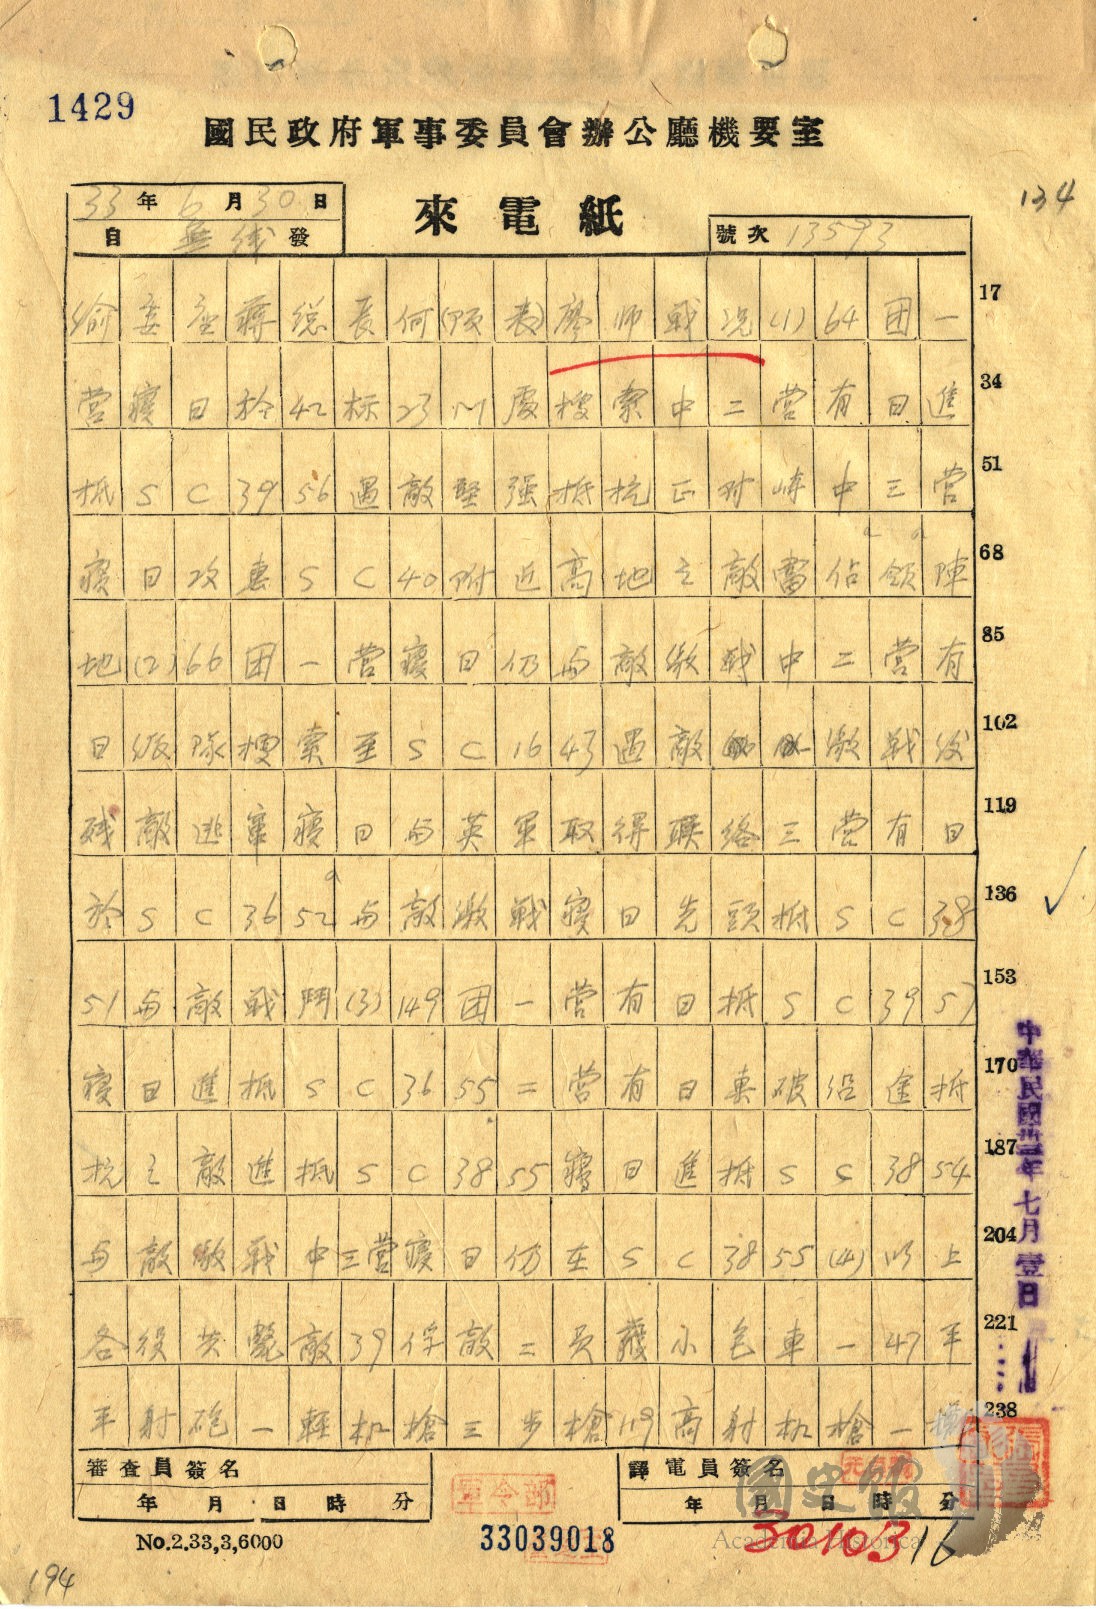 1429
國民政府軍事委員會辦公廳機要室
134
33年6月30日
來電紙
自無线發
號次 13593
渝委座蔣总長何(頃表)廖师戰况(1)64团一
17
营寝日於42标23M處搜索中二营有日進
34
抵SC3956遇敵堅强抵抗正对峙中三营
51
寝日攻惠SC40附近高地之敵當佔领陣
68
地(2)66团一营寝日仍与敵激戰中二营有
85
日派隊搜索至SC1643遇敵激戰後
102
残敵逃竄寝日与英軍取得联络三营有日
119
於SC3652与敵激戰寝日先頭抵SC38
136
51与敵戰鬥(3)149团一营有日抵SC3957
153
寝日進抵SC3655二营有日擊破沿途抵
170
抗之敵進抵SC3855寝日進抵SC3854
187
与敵激戰中三营寝日仍在SC3855(4)以上
204
各役共斃敵39俘敵二员獲小包車一47平
221
平射砲一輕机槍三步槍119高射机槍一
238
中華民國卅三年七月壹日
審查員簽名
年 月 日 時 分
譯電員簽名
年 月 日 時 分
軍令部
國史館
Academia Historica
No.2.33,3,6000
33039018
3010316
194